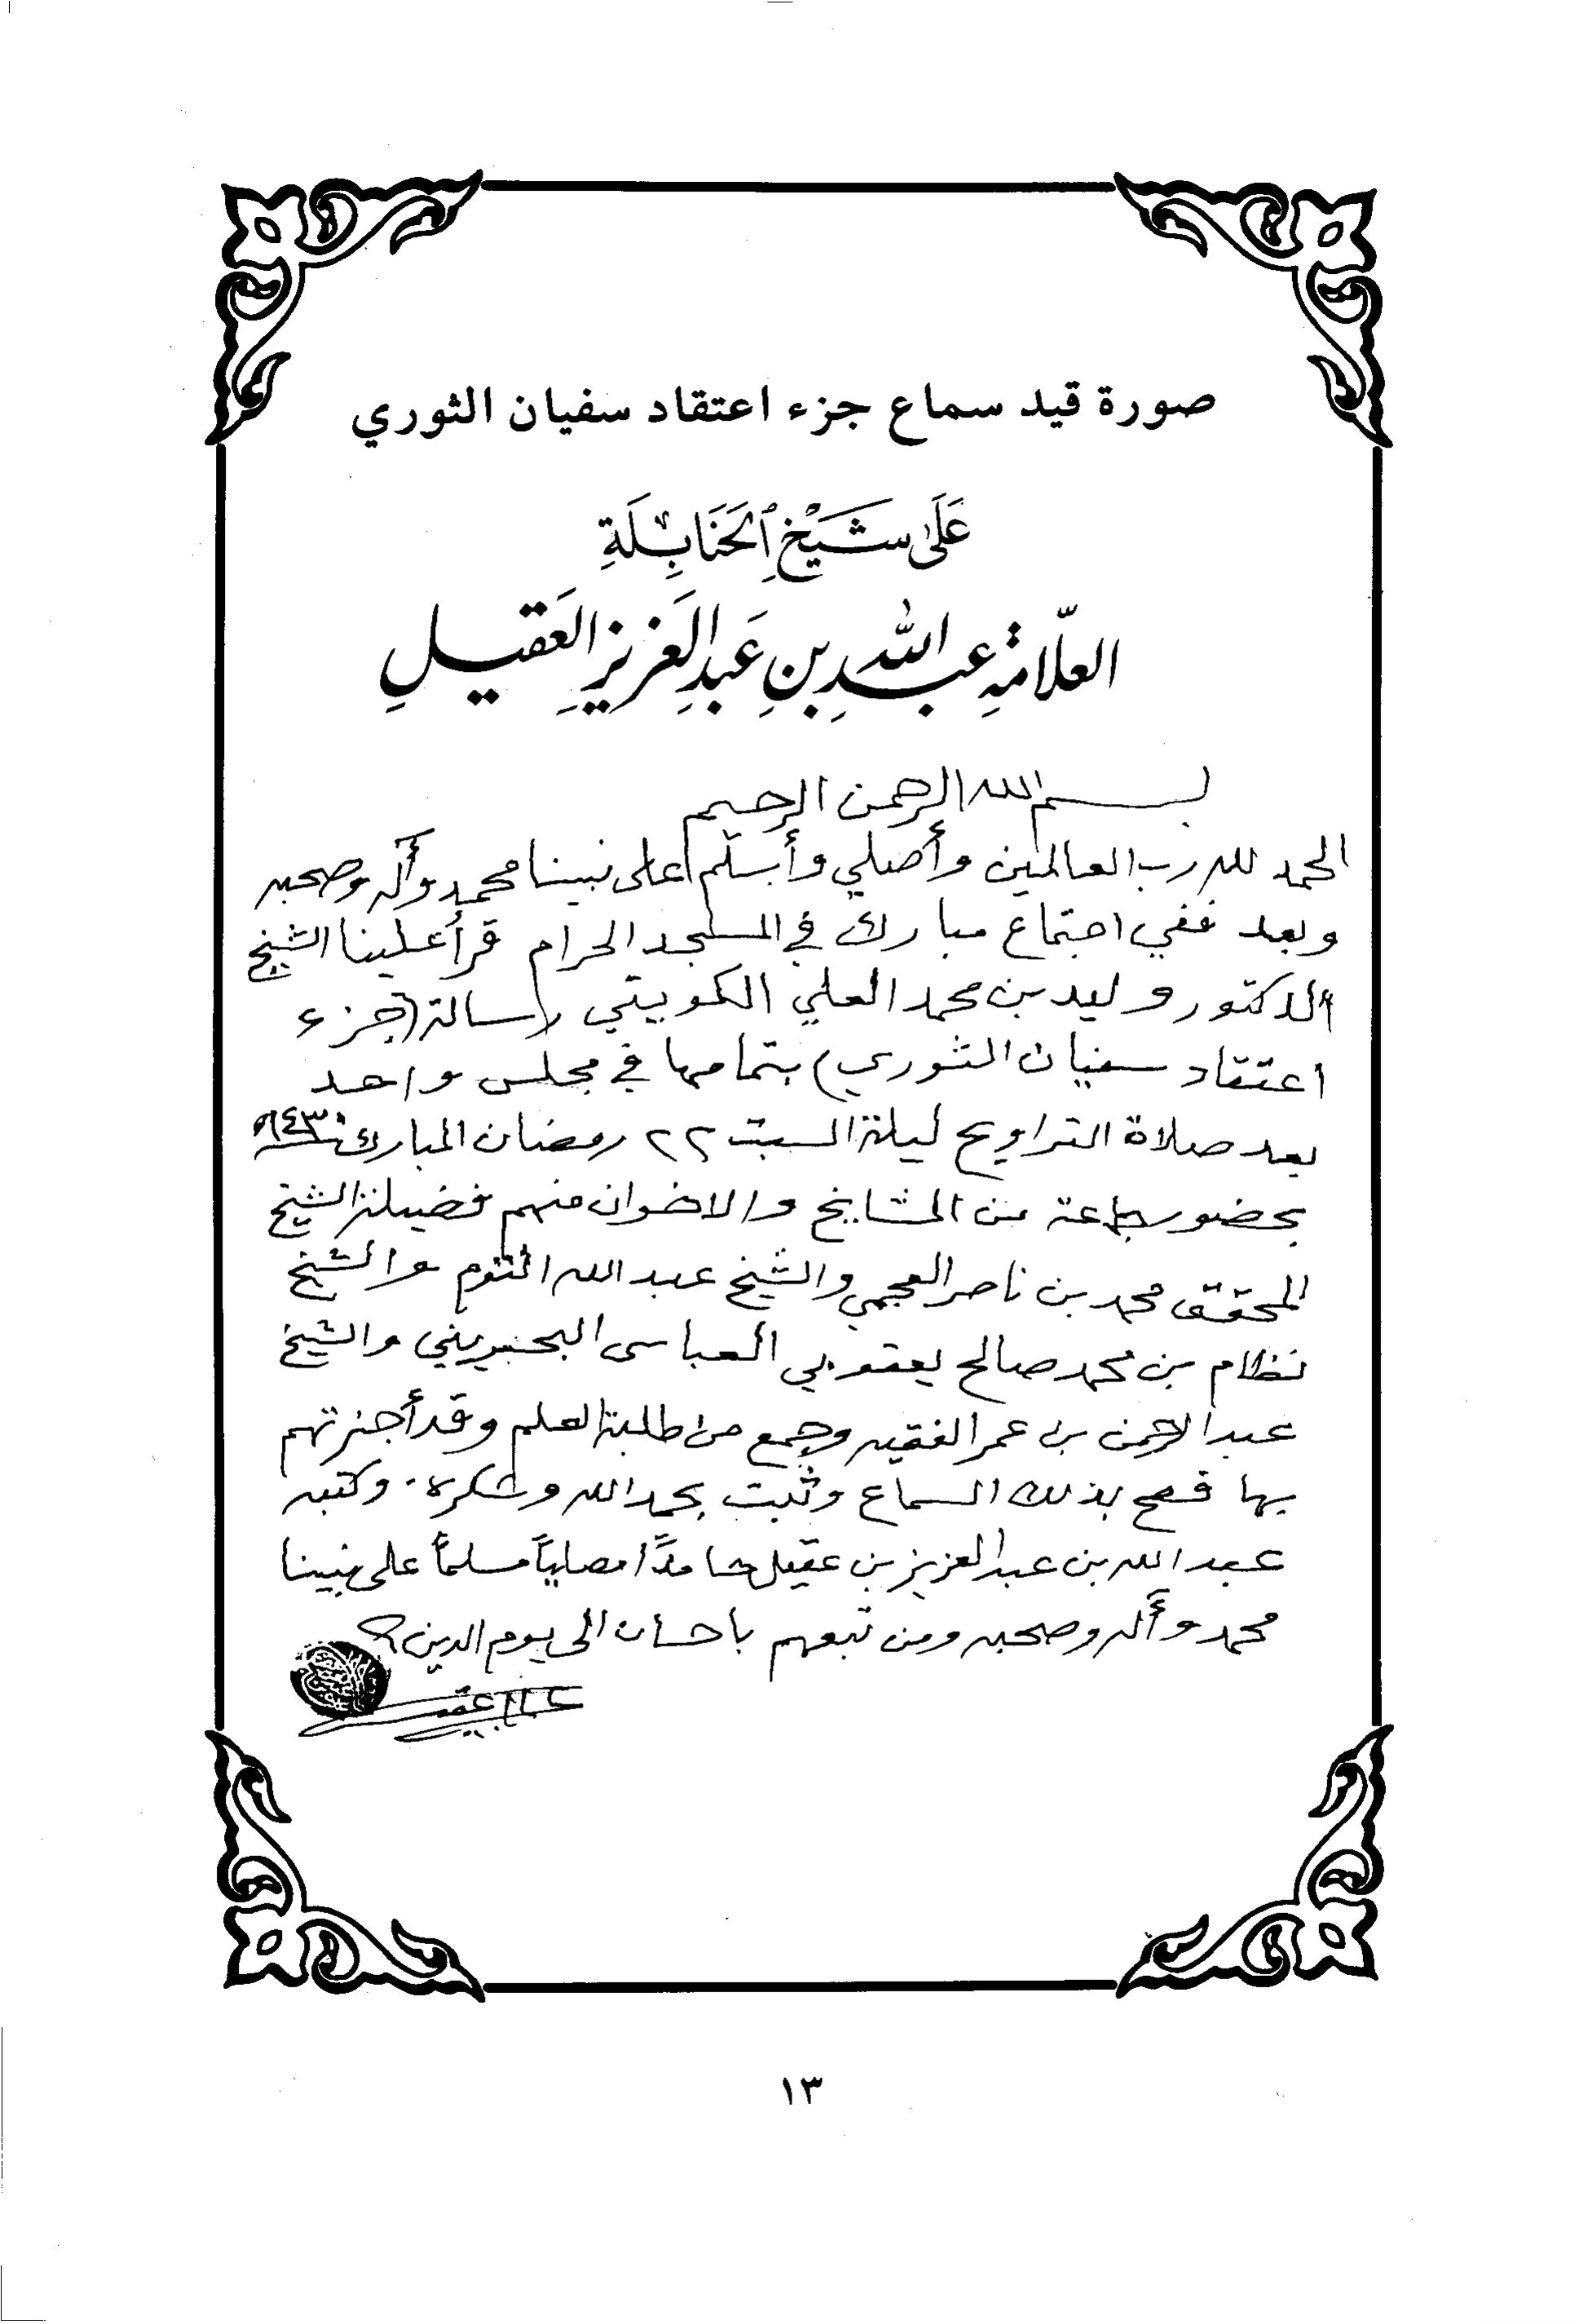 صورة قيد سماع جزء اعتقاد سفيان الثوري
عَلَى شَيْخِ الحَنَابِلَةِ
العلّامةِ عبدِ اللهِ بنِ عَبدِ العَزيزِ العَقيلِ
بسم الله الرحمن الرحيم
الحمد لله رب العالمين وأصلي وأسلّم على نبينا محمد وآله وصحبه
وبعد ففي اجتماع مبارك في المسجد الحرام قرأ علينا الشيخ
الدكتور وليد بن محمد العلي الكويتي رسالة (جزء
اعتقاد سفيان الثوري) بتمامها في مجلس واحد
بعد صلاة التراويح ليلة السبت ٢٢ رمضان المبارك ١٤٣٠هـ
بحضور جماعة من المشايخ والاخوان منهم فضيلة الشيخ
المحقق محمد بن ناصر العجمي والشيخ عبد الله التوم والشيخ
نظام بن محمد صالح يعقوبي العباسي البحريني والشيخ
عبد الرحمن بن عمر الفقيه وجمع من طلبة العلم وقد أجزتهم
بها فصح بذلك السماع وثبت بحمد الله وشكره. وكتبه
عبد الله بن عبد العزيز بن عقيل حامدًا مصلياً مسلماً على نبينا
محمد وآله وصحبه ومن تبعهم باحسان الى يوم الدين
١٣